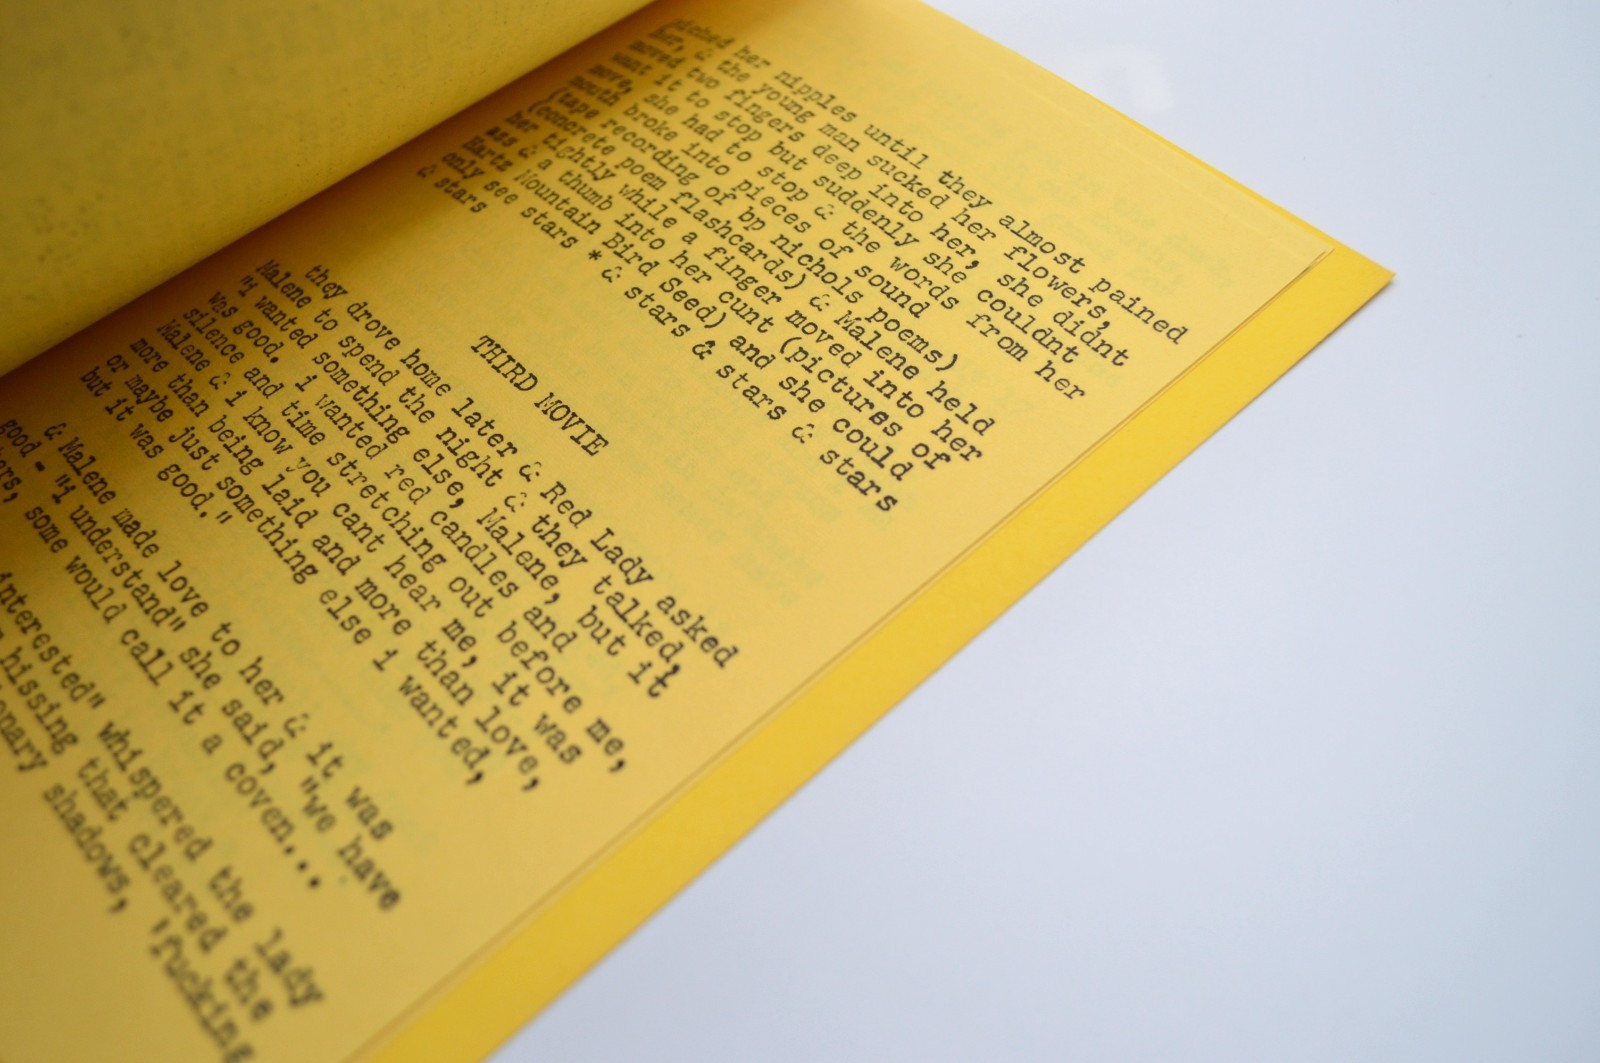 her nipples until they almost pained
her, & the young man sucked her flowers,
moved two fingers deep into her, she didnt
want it to stop but suddenly she couldnt
move, she had to stop & the words from her
mouth broke into pieces of sound
(tape recording of bp nichols poems)
(concrete poem flashcards) & Malene held
her tightly while a finger moved into her
ass & a thumb into her cunt (pictures of
Hartz Mountain Bird Seed) and she could
only see stars * & stars & stars & stars
& stars
THIRD MOVIE
they drove home later & Red Lady asked
Malene to spend the night & they talked,
"i wanted something else, Malene, but it
was good. i wanted red candles and
silence and time stretching out before me,
Malene & i know you cant hear me, it was
more than being laid and more than love,
or maybe just something else i wanted,
but it was good."
& Malene made love to her & it was
good - "i understand" she said, "we have
some would call it a coven...
interested" whispered the lady
hissing that cleared the
shadows, 'fucking